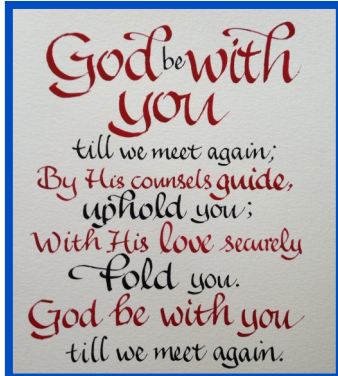 God be with
you
till we meet again;
By His counsels guide,
uphold you;
With His love securely
fold you.
God be with you
till we meet again.